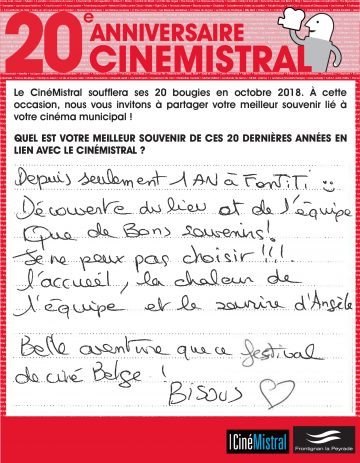 20e ANNIVERSAIRE
CINEMISTRAL
Le CinéMistral soufflera ses 20 bougies en octobre 2018. À cette
occasion, nous vous invitons à partager votre meilleur souvenir lié à
votre cinéma municipal !
QUEL EST VOTRE MEILLEUR SOUVENIR DE CES 20 DERNIÈRES ANNÉES EN
LIEN AVEC LE CINÉMISTRAL ?
Depuis seulement 1 AN à FONTITI
Découverte du lieu et de l'équipe
Que de Bons souvenirs!
Je ne peux pas choisir!!!
l'accueil, la chaleur de
l'équipe et le sourire d'Angèle
Belle aventure que ce festival
de ciné Belge !
BISOUS
CinéMistral
Frontignan la Peyrade